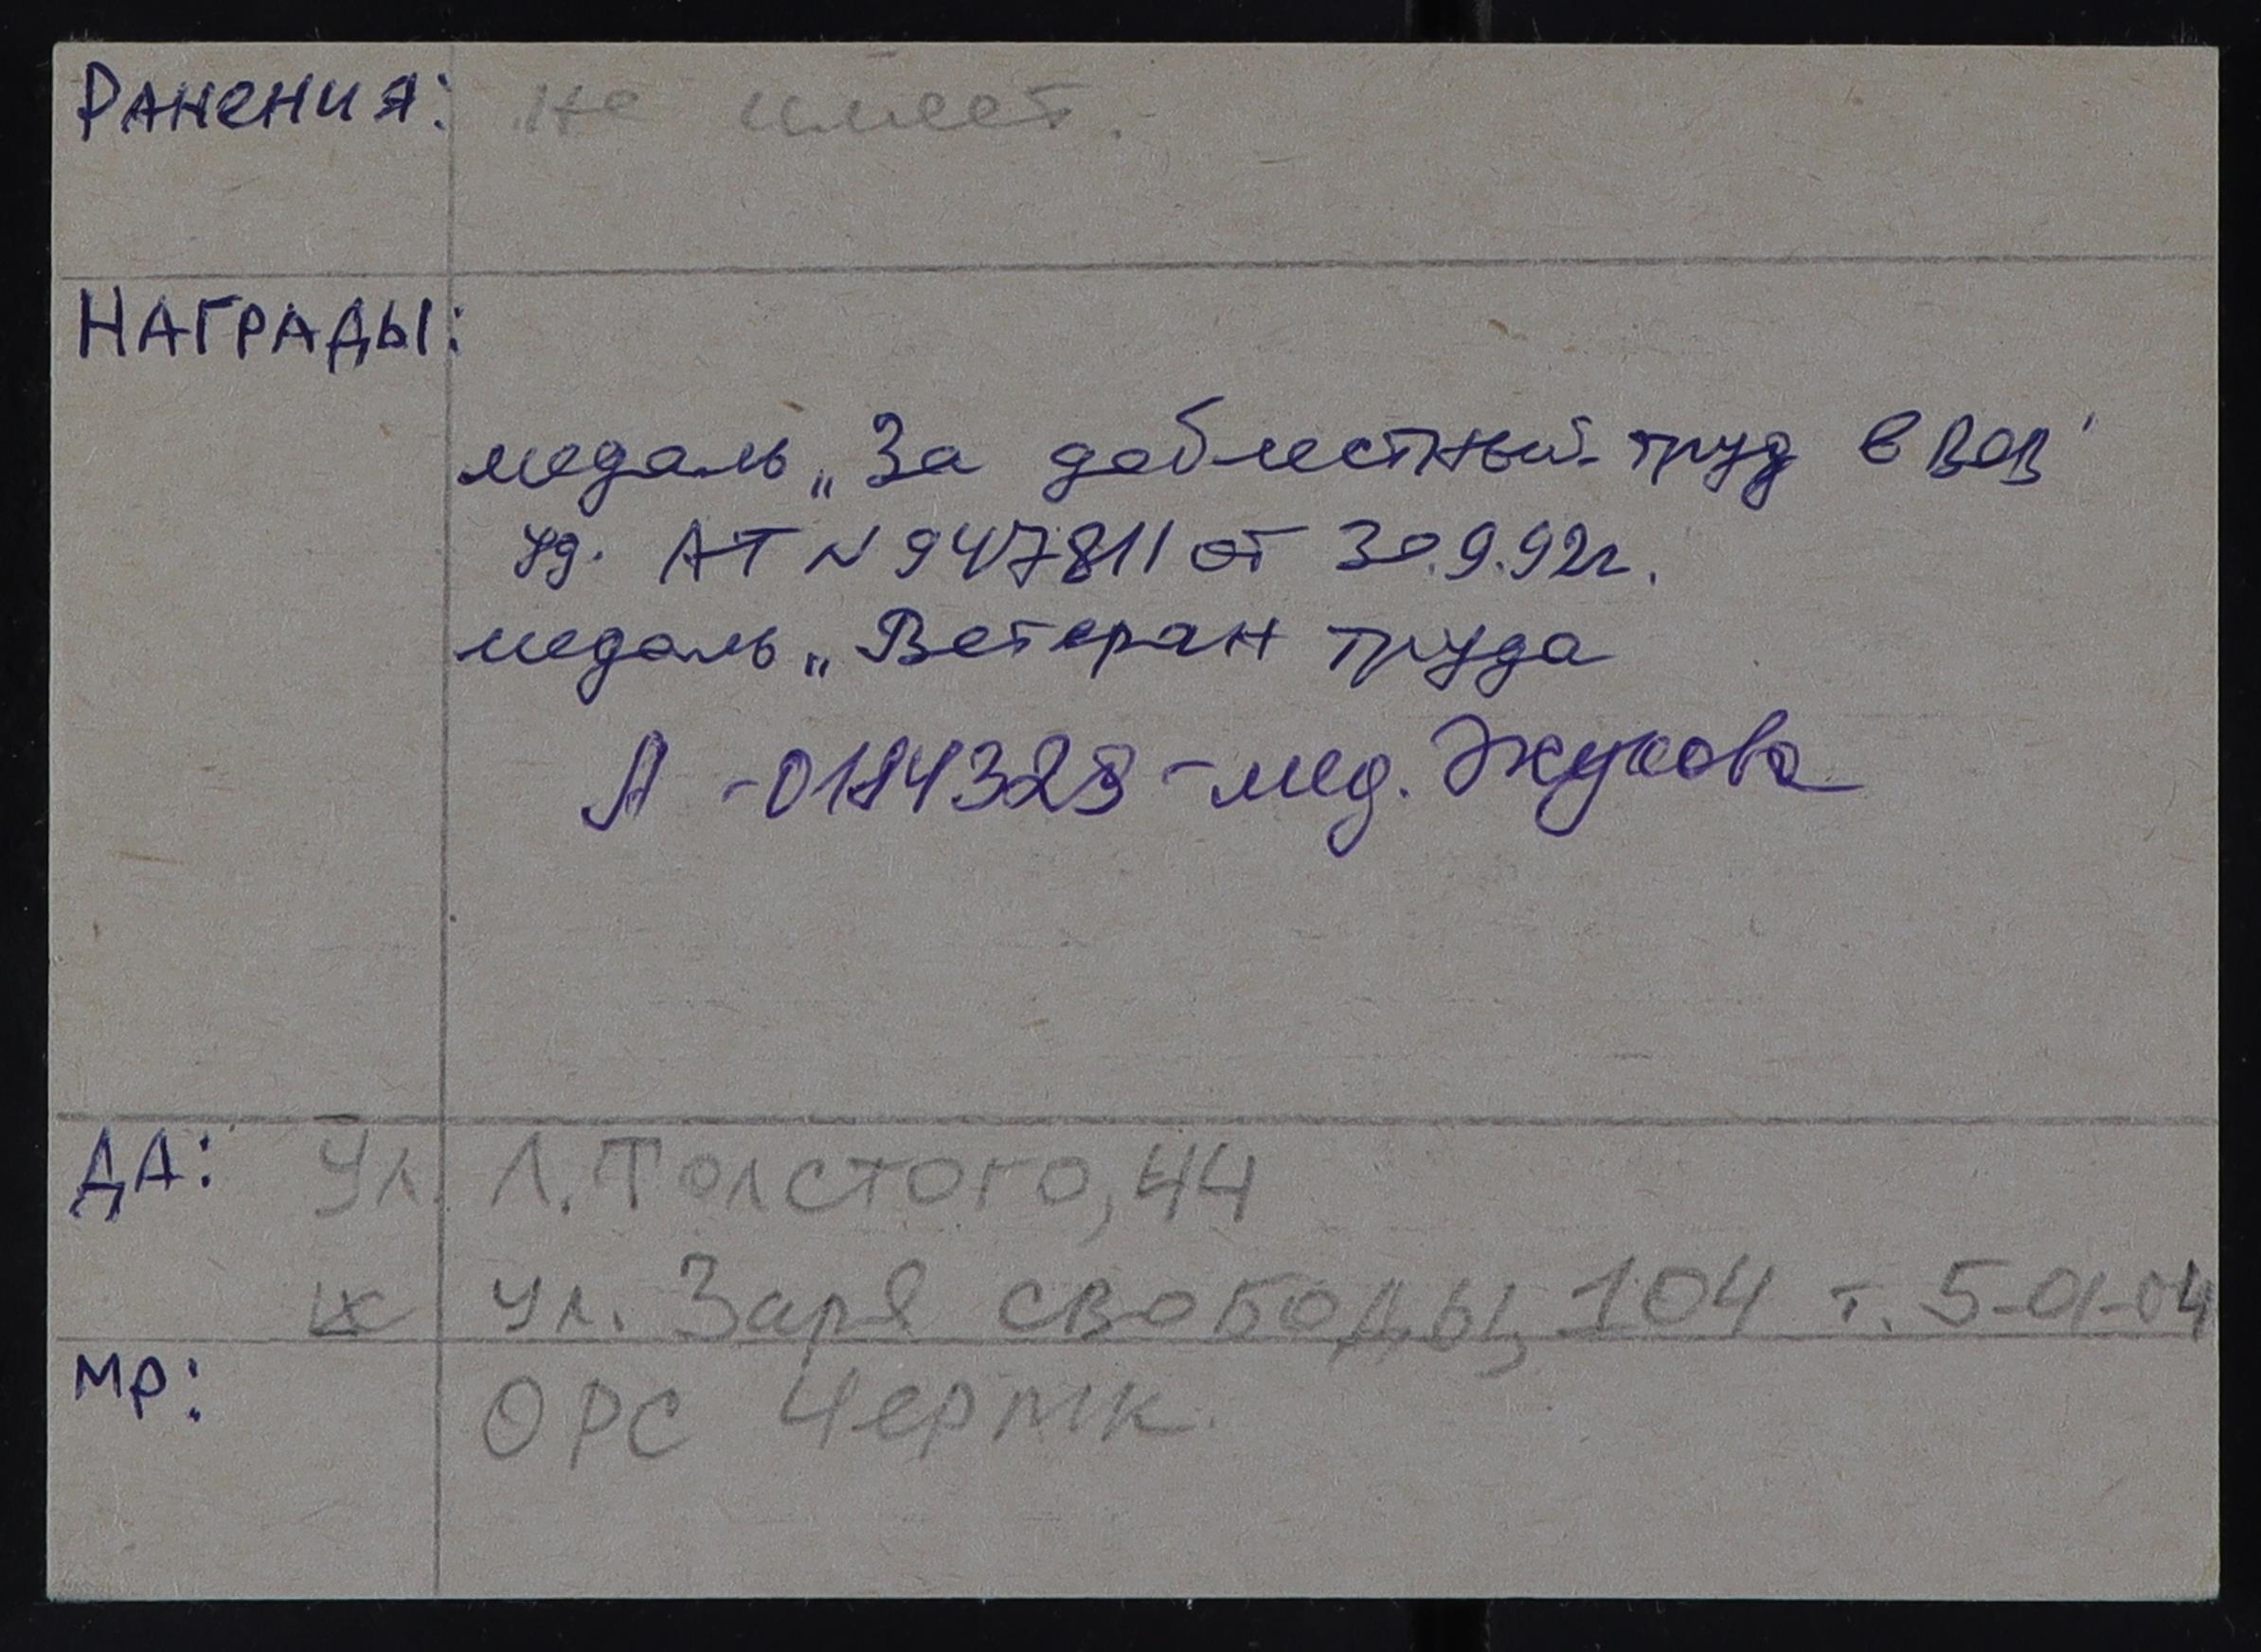 Ранения: не имеет.
Награды:
медаль „За доблестный труд в ВОВ"
уд. АТ N 947811 от 30.9.92г.
медаль „Ветеран труда
А - 0184328 - мед. Жукова
ДА: Ул. Л.Толстого, 44
ул. Заря свободы, 104 т. 5-01-04
МР: ОРС ЧерМК.